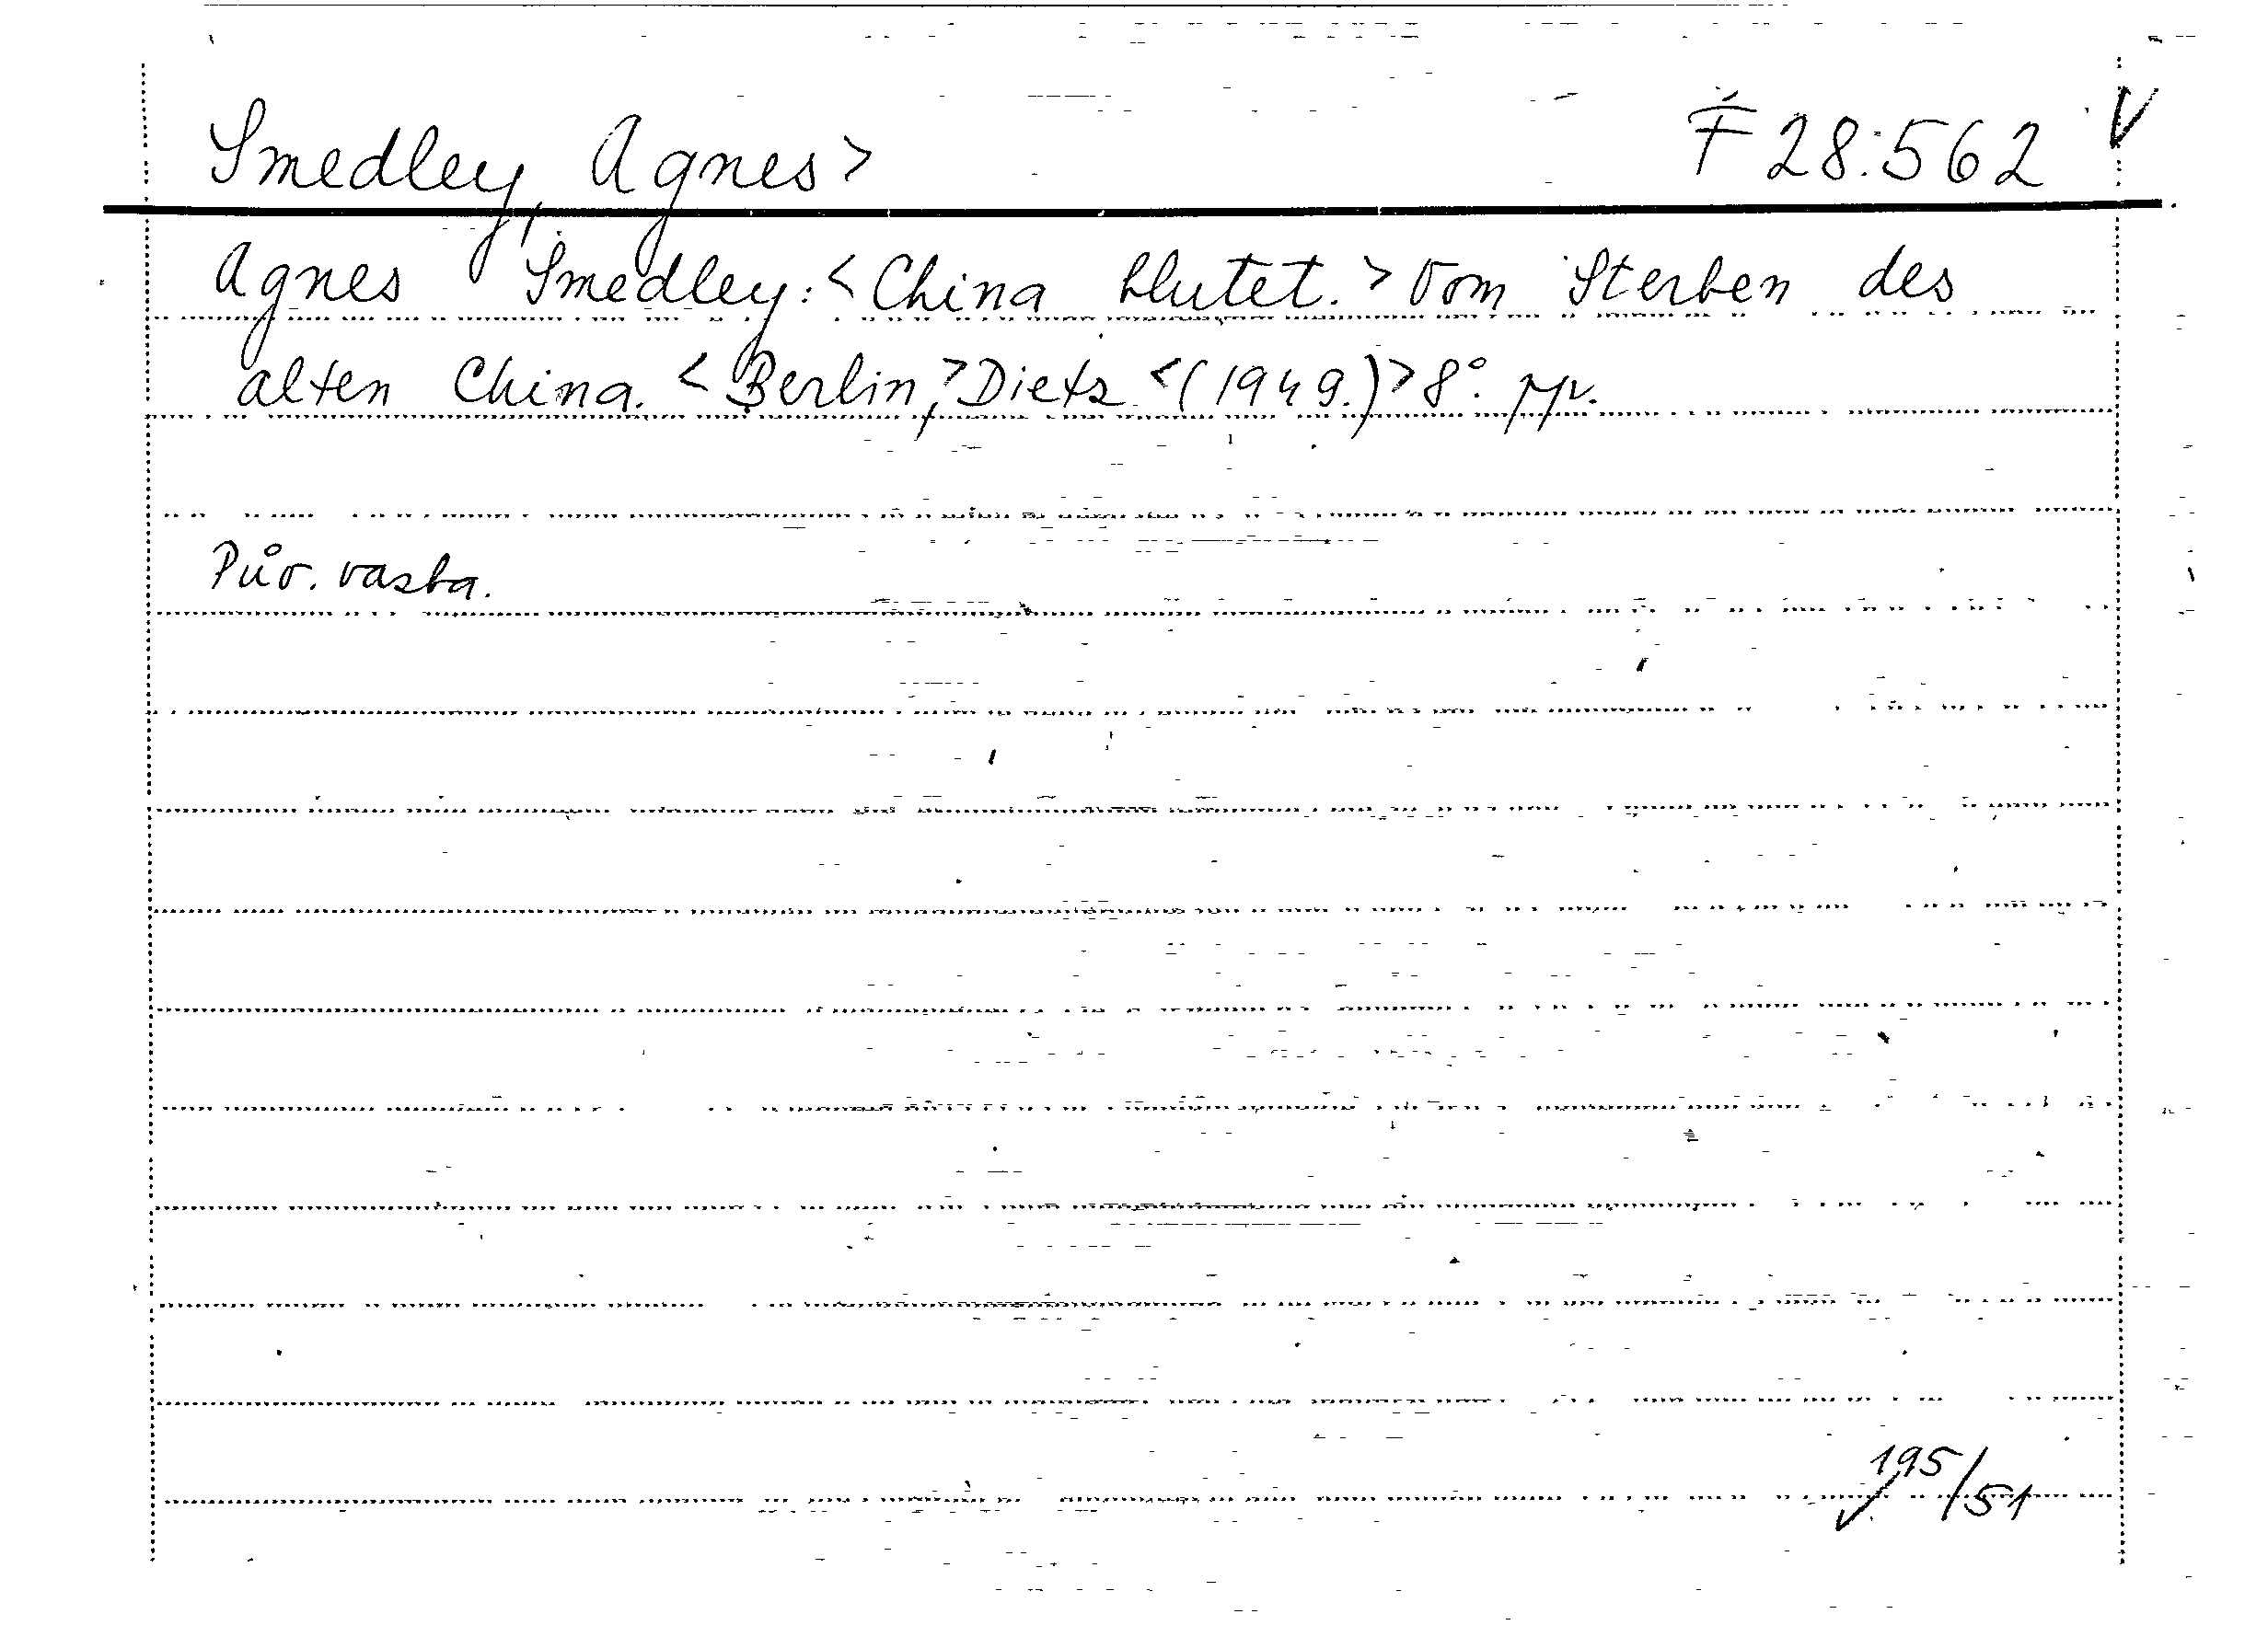 Smedley, Agnes> F 28:562 V
Agnes Smedley: <China blutet.> Vom Sterben des
alten China. <Berlin,> Dietz <(1949.)> 8°.
Pův. vazba.
195/51